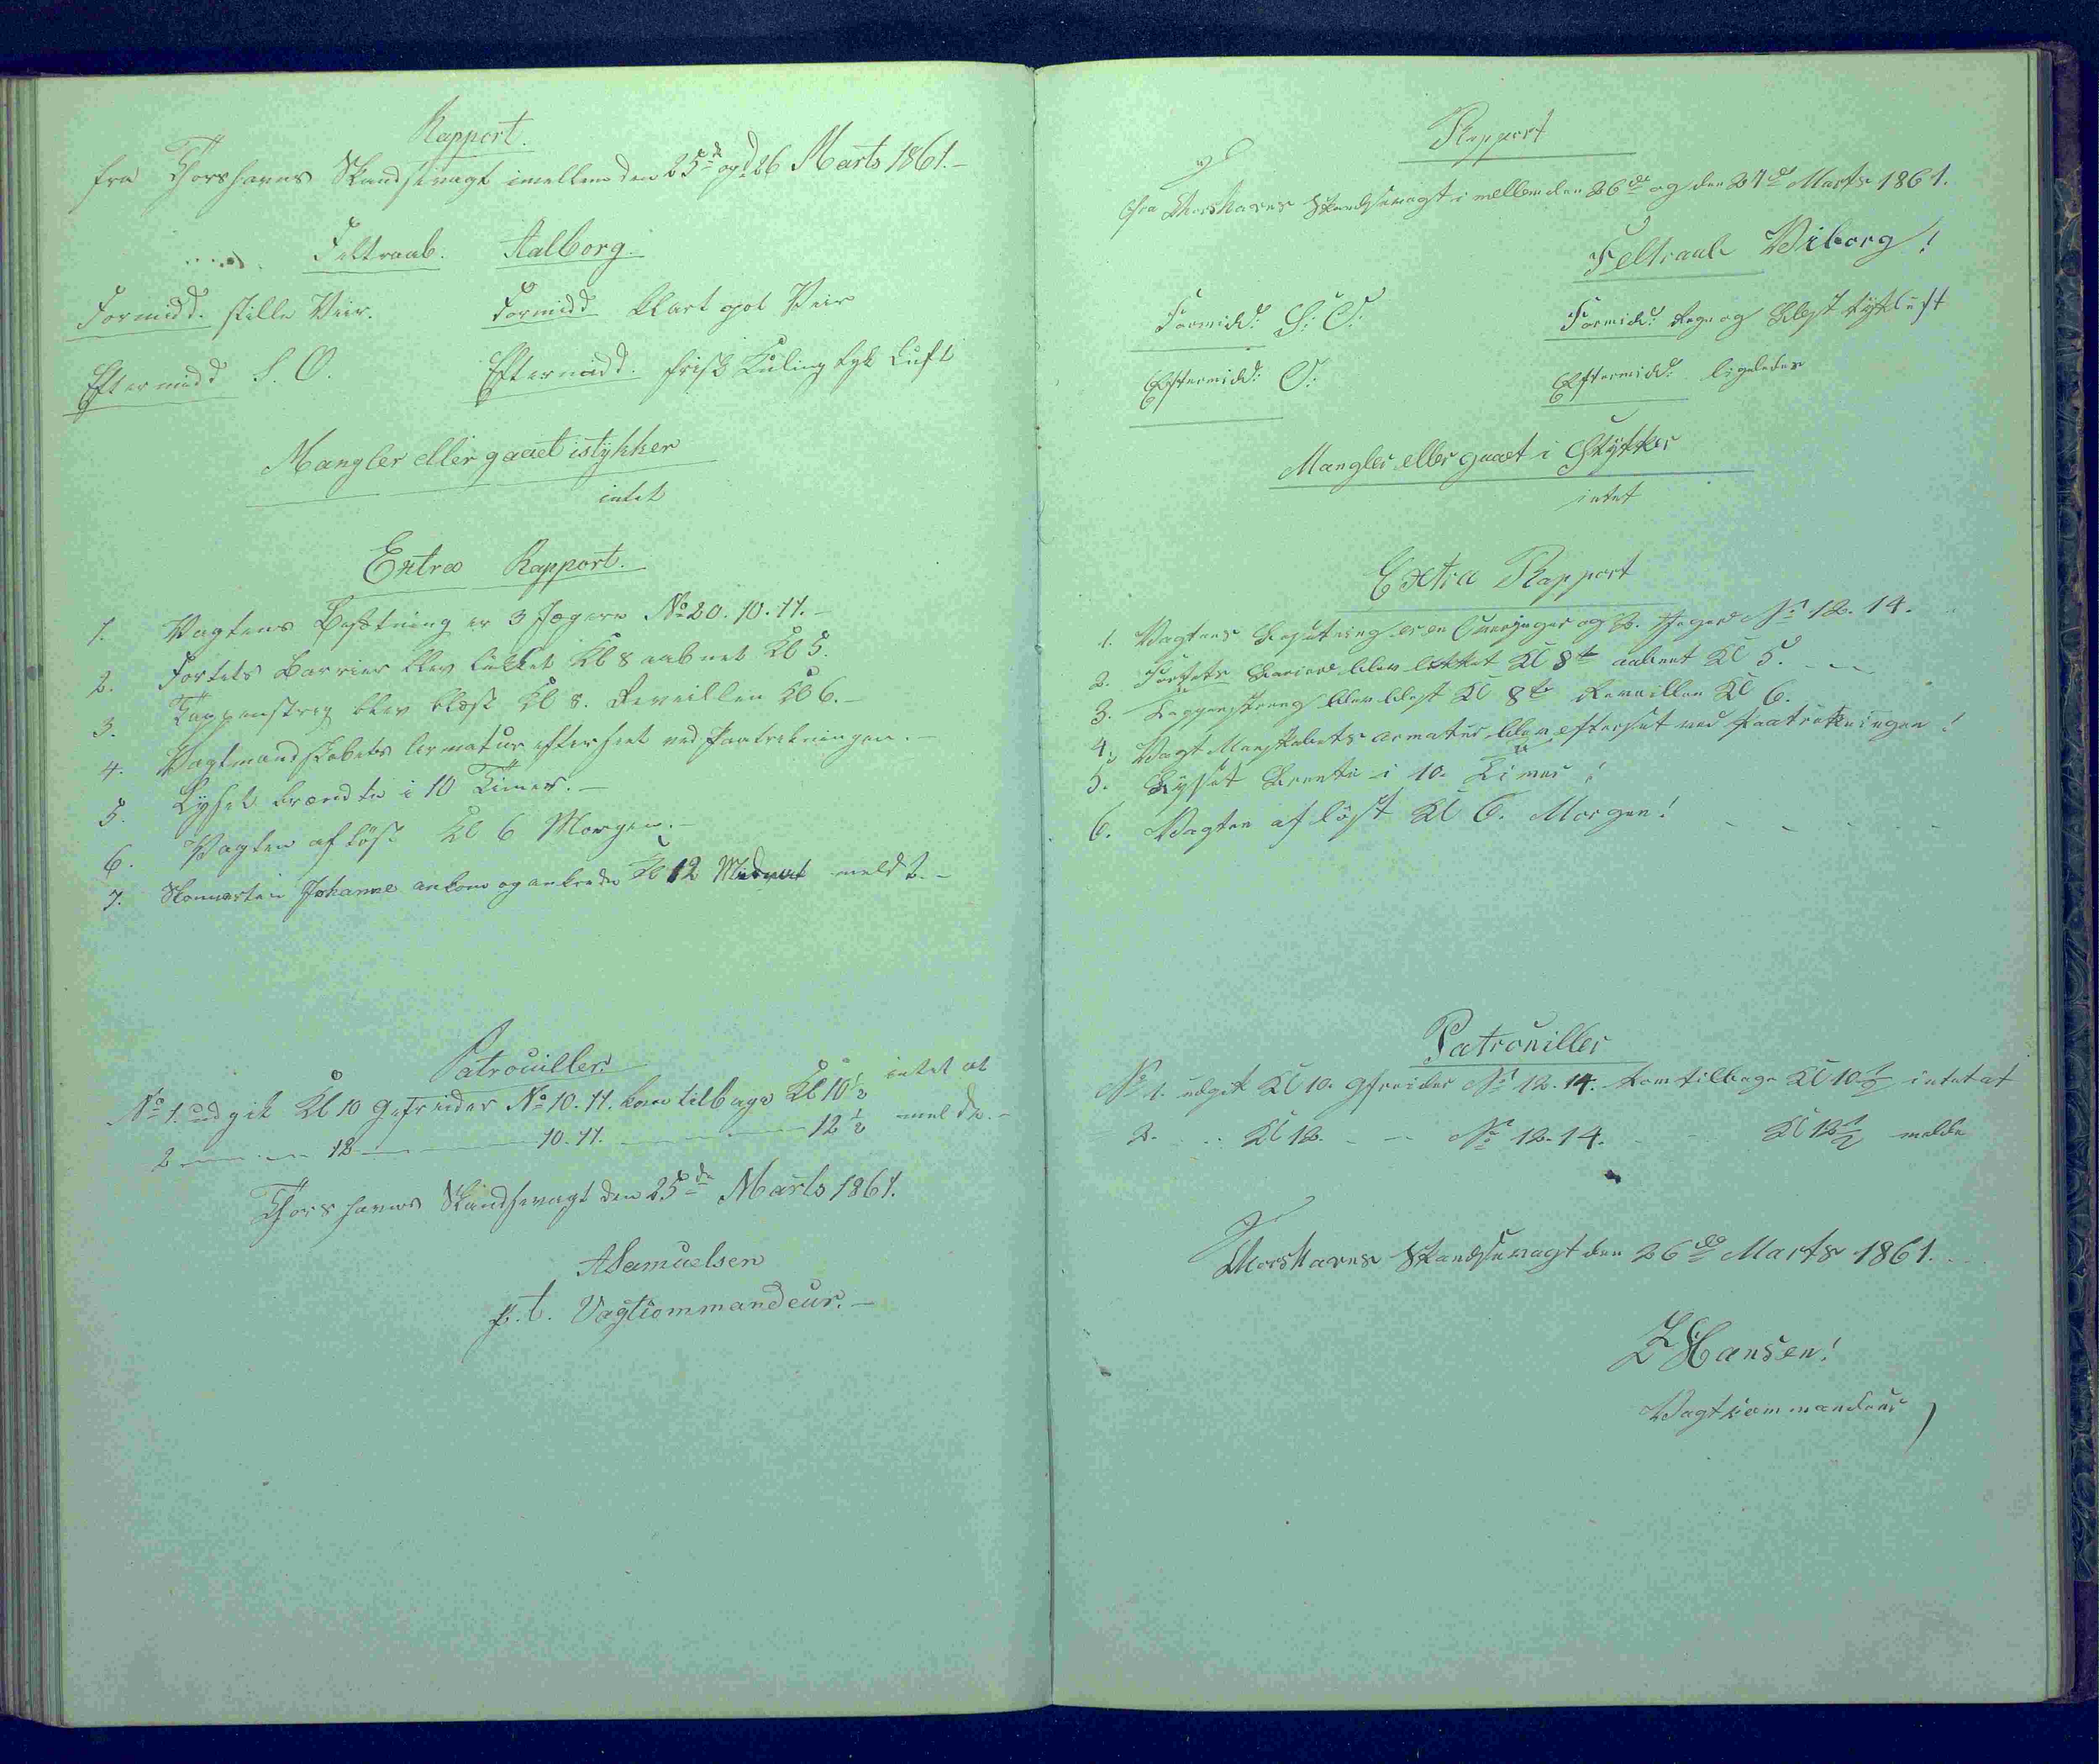 Rapport.
fra Thorshavns Skandsevagt imellem den 25de og d 26 Marts 1861.-
Feltraab. Aalborg.
Formidd. stille Veir. Formidd klart got Veir
Eftermidd S. O. Eftermidd. frisk Kuling tyk Luft
Mangler eller gaaet istykker
intet
Extra Rapport.
1. Vagtens Besætning er 3 Jægere No 20. 10. 11.-
2. Fortets Barrier blev lukket Kl 8 aabnet Kl 5.
3. Tappenstreg blev blæst Kl 8. Reveillen Kl 6.-
4. Vagtmandskabets Armatur efterseet ved Paatrækningen.-
5. Lyset brændte i 10 Timer.-
6. Vagten afløst Kl 6 Morgen.-
7. Skonnerten Johanne ankom og ankrede Kl 12 meldt.-
Patrouiller.
No 1. udgik Kl 10 Gefreider No 10. 11. kom tilbage Kl 10 1/2 intet at
2 12 10. 11. 12 1/2 melde.-
Thorshavns Skandsevagt den 25de Marts 1861.
ASamuelsen
p. t. Vagtcommandeur.-
Rapport
fra Thorshavns Skandsevagt imellem den 26de og den 27de Marts 1861.
Feltraab Viborg!
Formidd: S: O: Formidd: Regn og Blæst tyk Luft
Eftermidd: O: Eftermidd: ligeledes
Mangler eller gaaet i Stykker
intet
Extra Rapport
1. Vagtens Besætning er en Overjæger og 2. Jægere No 12. 14.
2. Fortets Bariere blev lokket Kl 8te aabnet Kl 5.
3. Tappenstreng blev blæst Kl 8te Reveillen Kl 6.
4. Vagt Manskabets armatur blev efterset ved paatrækningen!
5. Lyset Brente i 10. Timer!
6. Vagten afløst Kl 6. Morgen!
Patrouiller
No 1. udgik Kl 10. Gfreider No 12. 14. kom tilbage Kl 10 1/2 intet at
2. Kl 12. No 12. 14. Kl 12 1/2 melde
Thorshavns Skandsevagt den 26de Marts 1861.
Hansen!
Vagtcommandeur